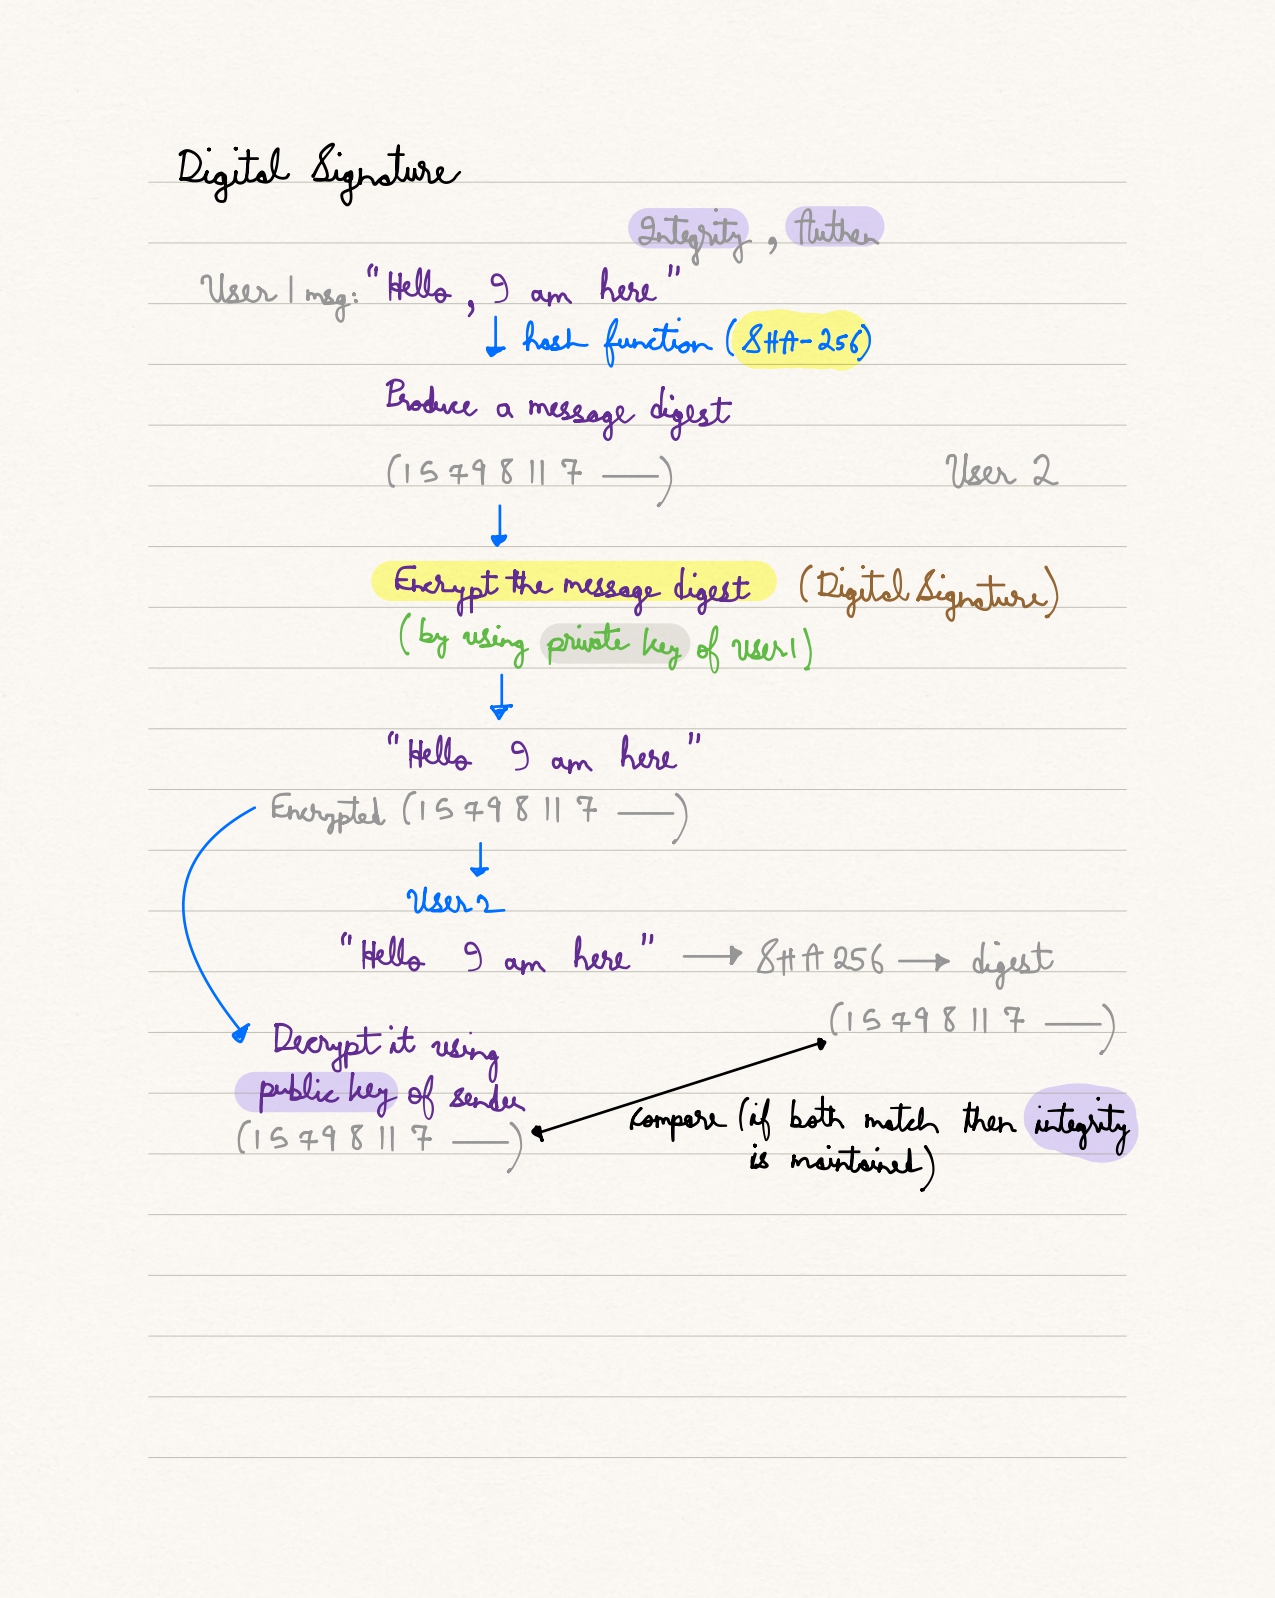 Digital Signature
Integrity, Authen
User 1 msg: "Hello, I am here"
hash function (SHA-256)
Produce a message digest
(1 5 7 9 8 11 7 —)
User 2
Encrypt the message digest (Digital Signature)
(by using private key of user 1)
"Hello I am here"
Encrypted (1 5 7 9 8 11 7 —)
User 2
"Hello I am here" → SHA 256 → digest
(1 5 7 9 8 11 7 —)
Decrypt it using
public key of sender
(1 5 7 9 8 11 7 —)
Compare (if both match then integrity
is maintained)